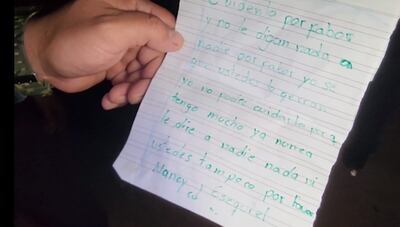 Cuidenla por fabor
y no le digan nada a
nadie por fabor yo se
que ustedes la qerran
yo no podre cuidarla porq
tengo mucho ya nunca
le dije a nadie nada ni
ustedes tampoco por fabor
Nancy y Esequiel